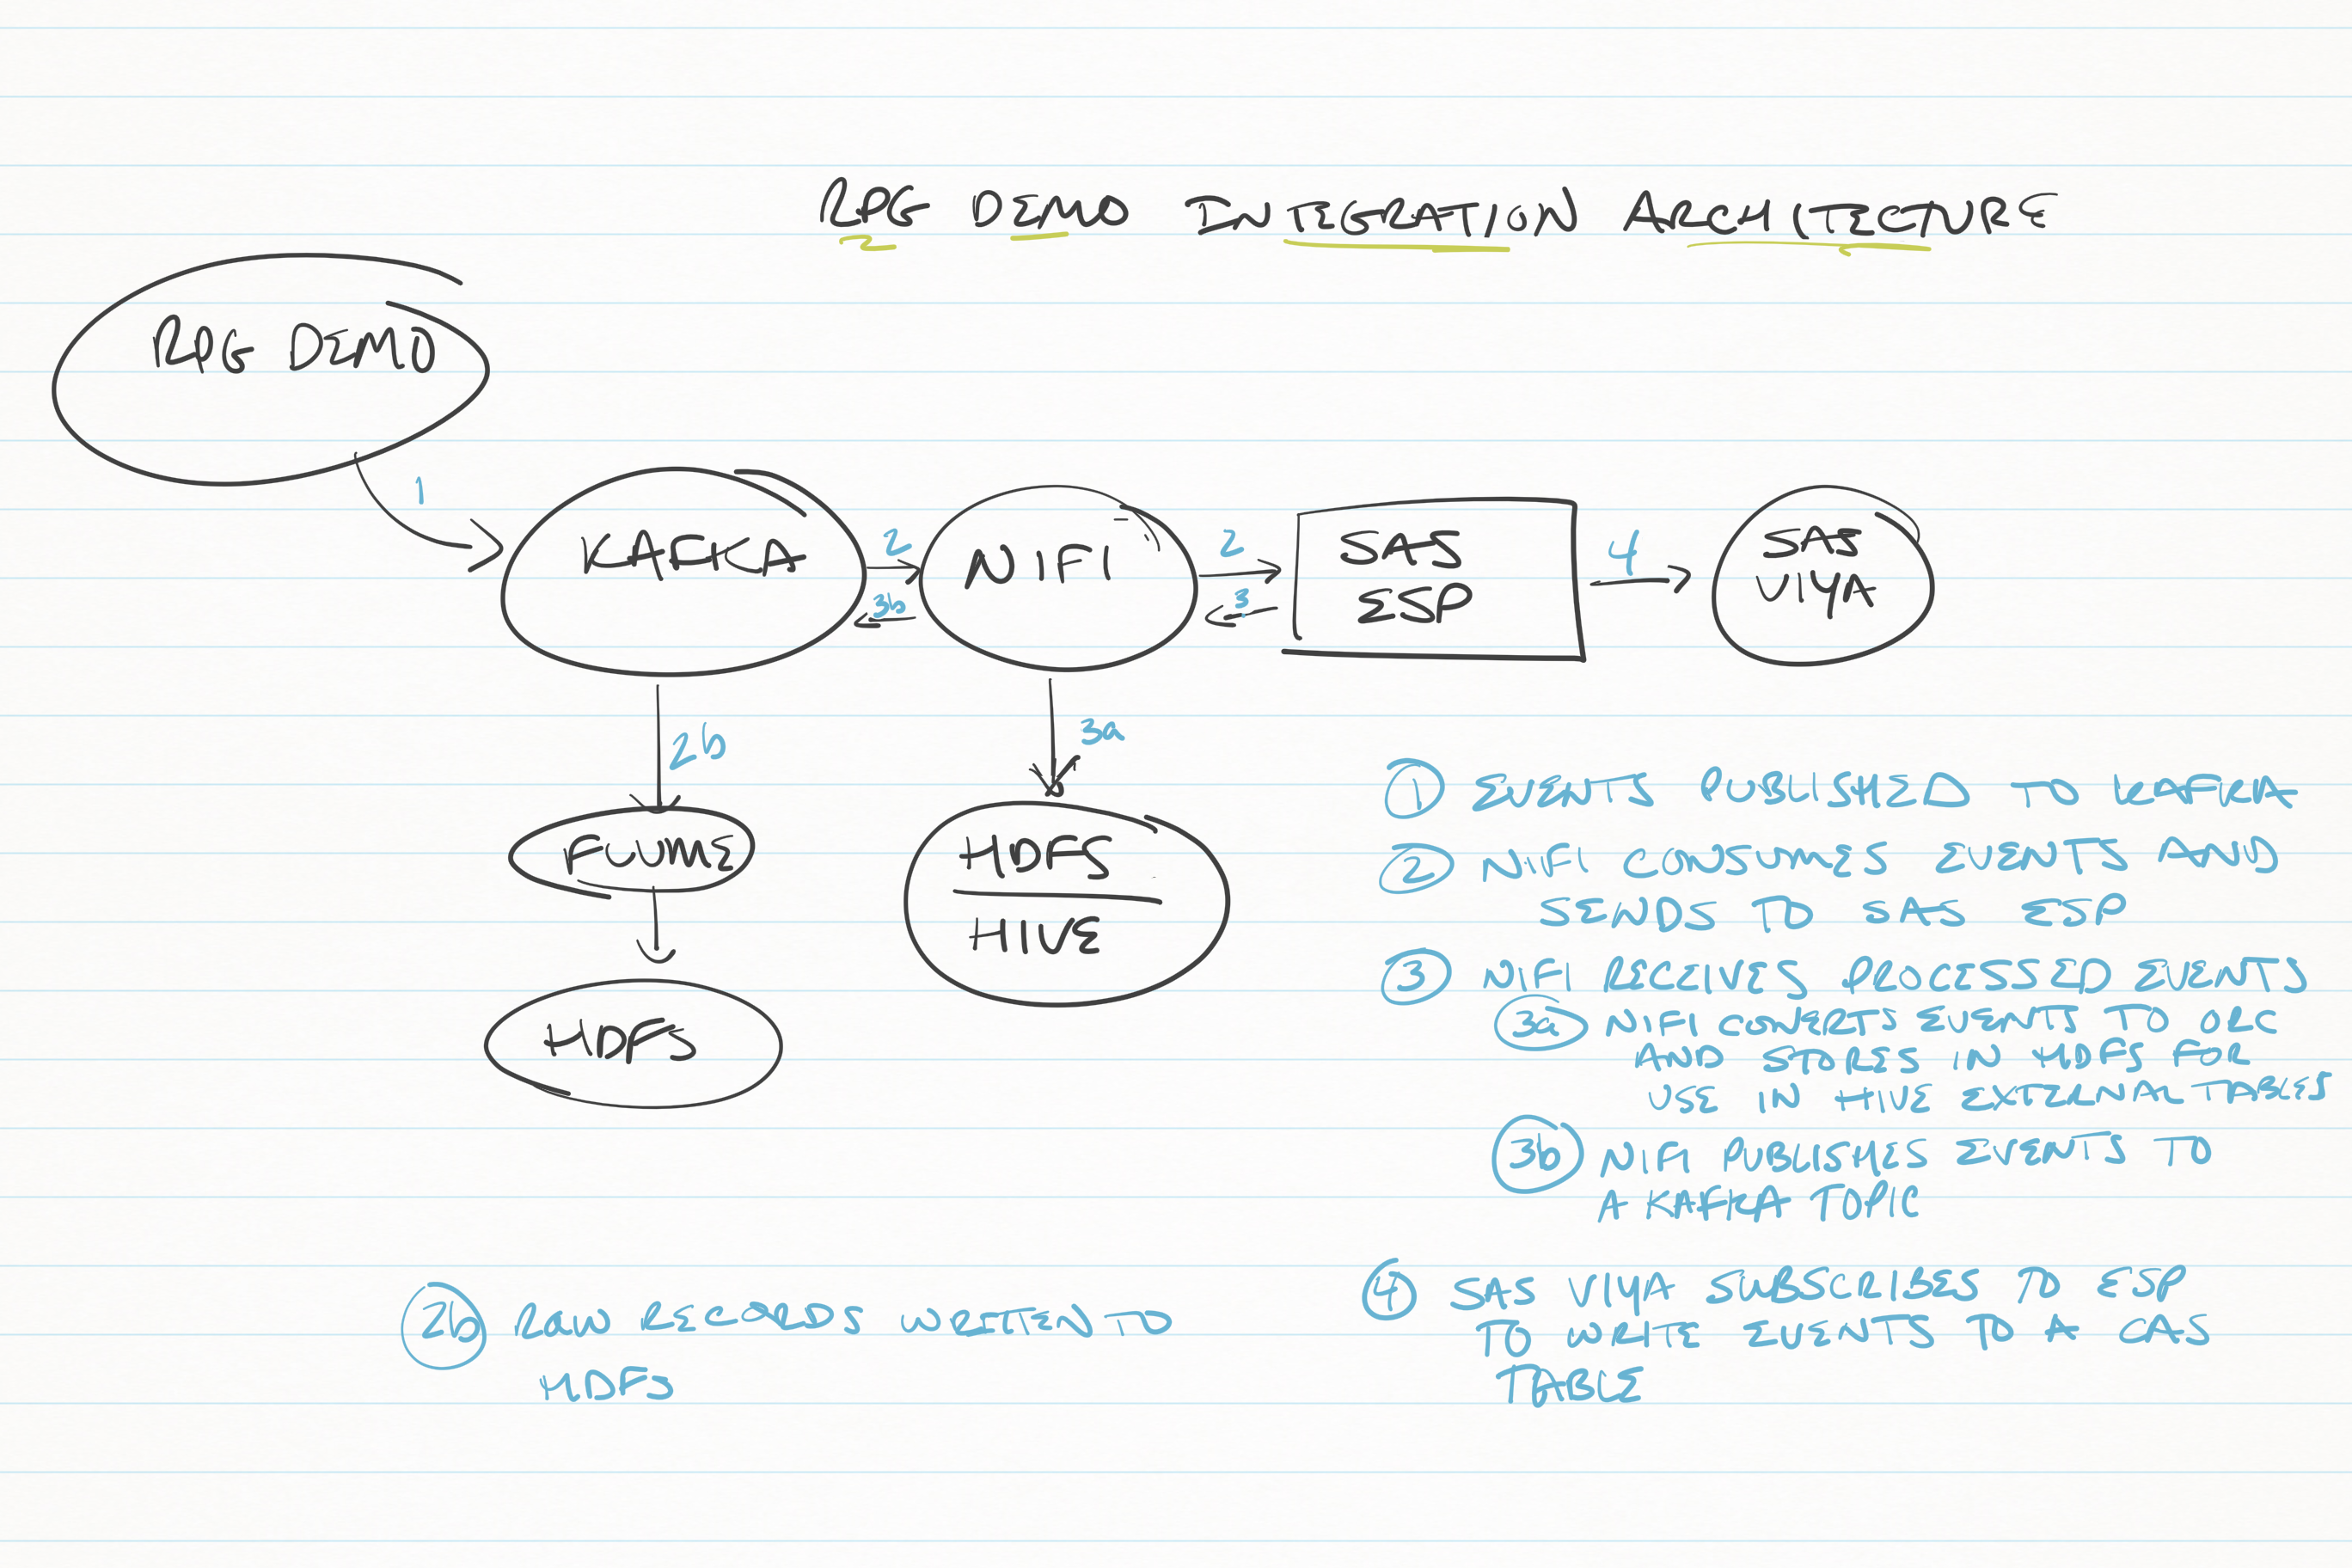 RPG DEMO INTEGRATION ARCHITECTURE
RPG DEMO
1
KAFKA
2
3b
NIFI
2
3
SAS
ESP
4
SAS
VIYA
2b
3a
FLUME
HDFS
HIVE
HDFS
1 EVENTS PUBLISHED TO KAFKA
2 NIFI CONSUMES EVENTS AND
SENDS TO SAS ESP
3 NIFI RECEIVES PROCESSED EVENTS
3a NIFI CONVERTS EVENTS TO ORC
AND STORES IN HDFS FOR
USE IN HIVE EXTERNAL TABLES
3b NIFI PUBLISHES EVENTS TO
A KAFKA TOPIC
4 SAS VIYA SUBSCRIBES TO ESP
TO WRITE EVENTS TO A CAS
TABLE
2b RAW RECORDS WRITTEN TO
HDFS